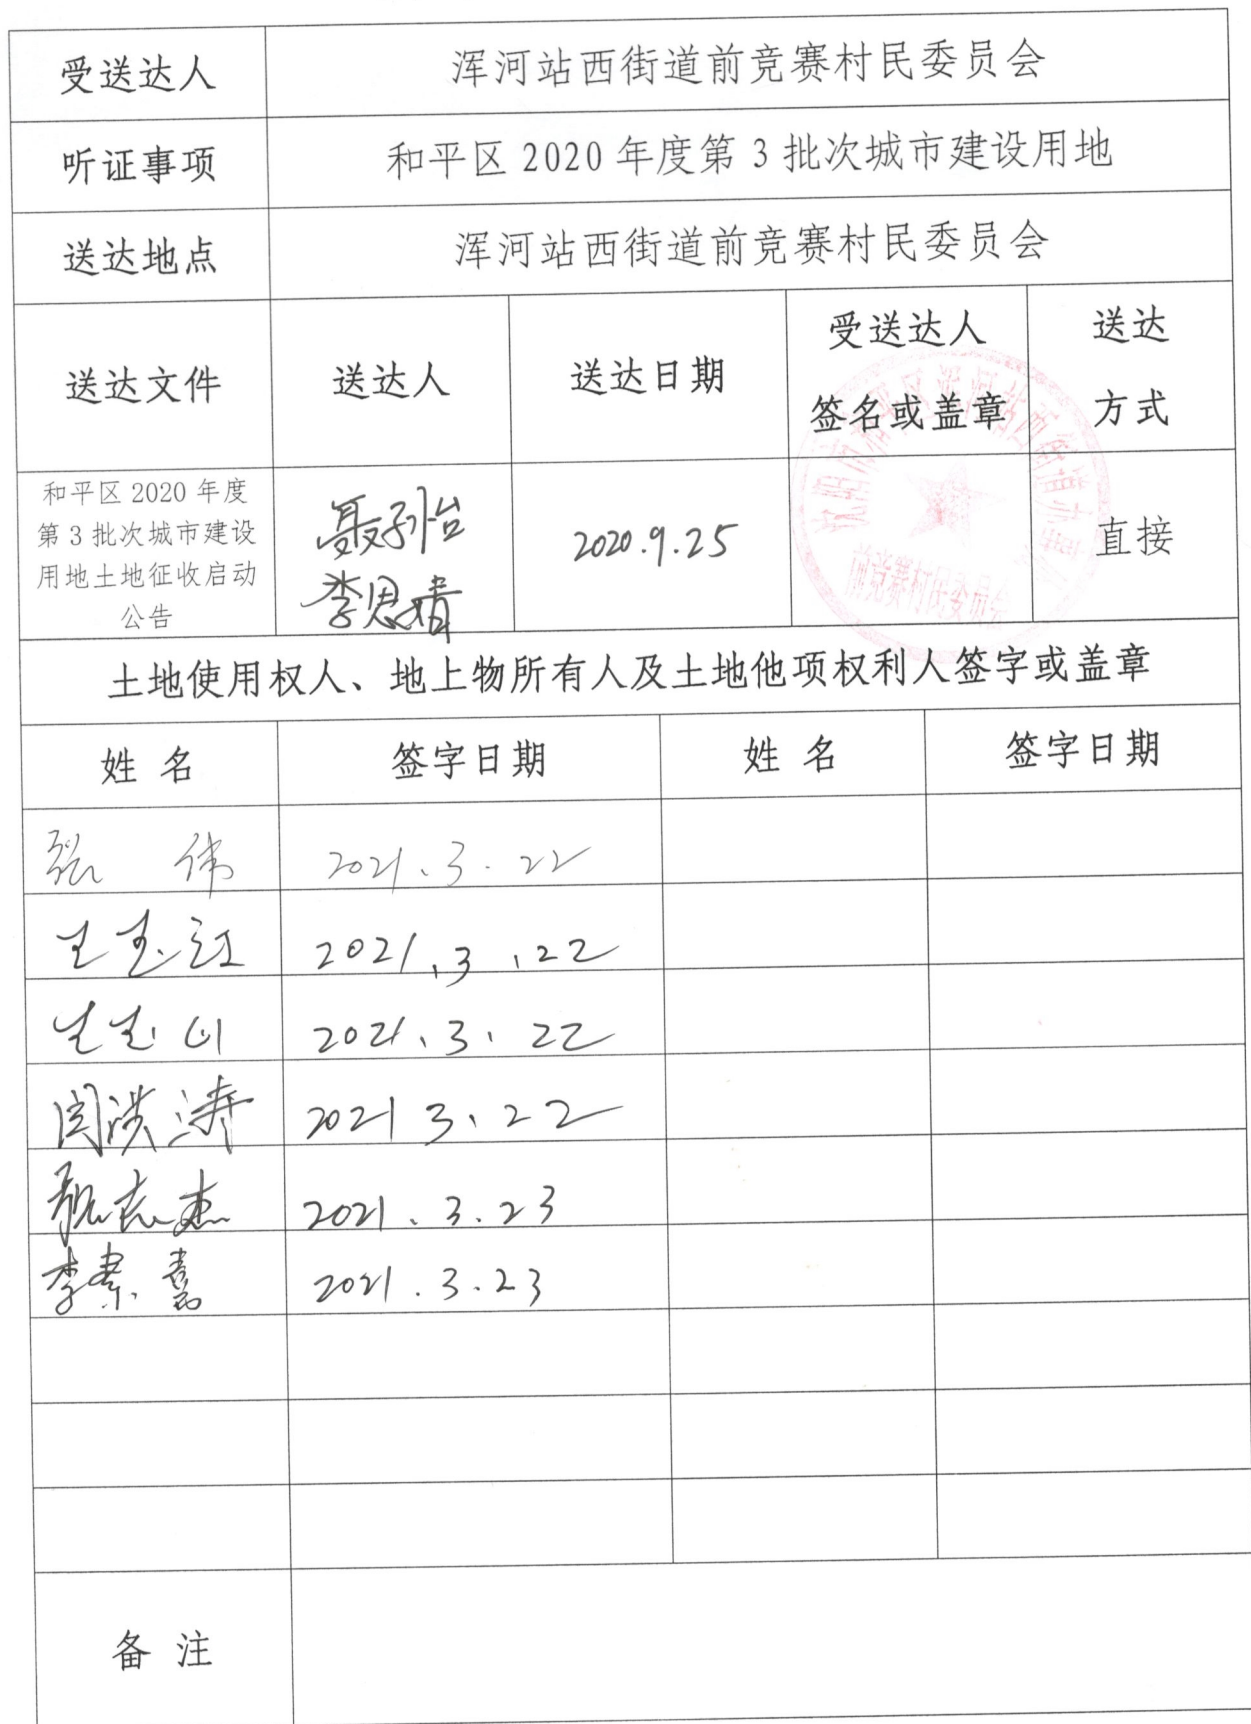 受送达人 浑河站西街道前竞赛村民委员会
听证事项 和平区 2020 年度第 3 批次城市建设用地
送达地点 浑河站西街道前竞赛村民委员会
送达文件 送达人 送达日期 受送达人 签名或盖章 送达 方式
和平区 2020 年度
第 3 批次城市建设
用地土地征收启动
公告
聂子怡
李思婧
2020.9.25
前竞赛村民委员会
直接
土地使用权人、地上物所有人及土地他项权利人签字或盖章
姓 名 签字日期 姓 名 签字日期
张 伟 2021.3.22
王玉红 2021.3.22
王玉山 2021.3.22
闫洪涛 2021 3.22
魏志杰 2021.3.23
李素 2021.3.23
备 注